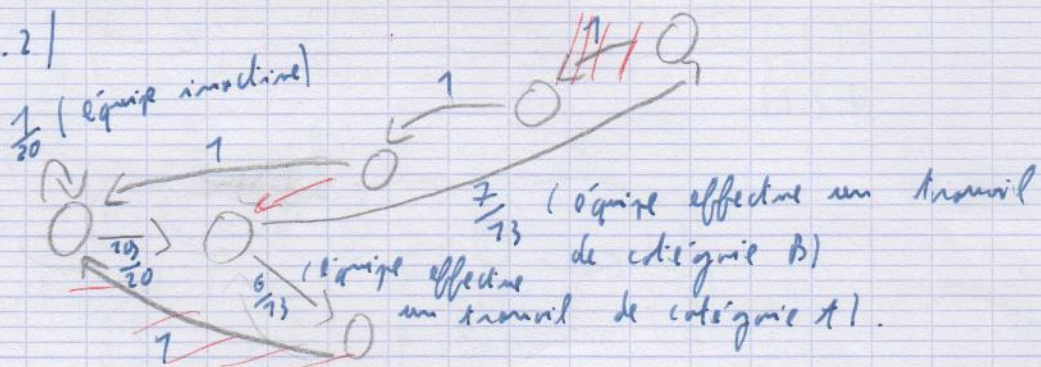 .2|
1
1/20 (équipe inactive)
1
1
19/20
7/13 (équipe effectue un travail
de catégorie B)
6/13 (équipe effectue
un travail de catégorie A).
1